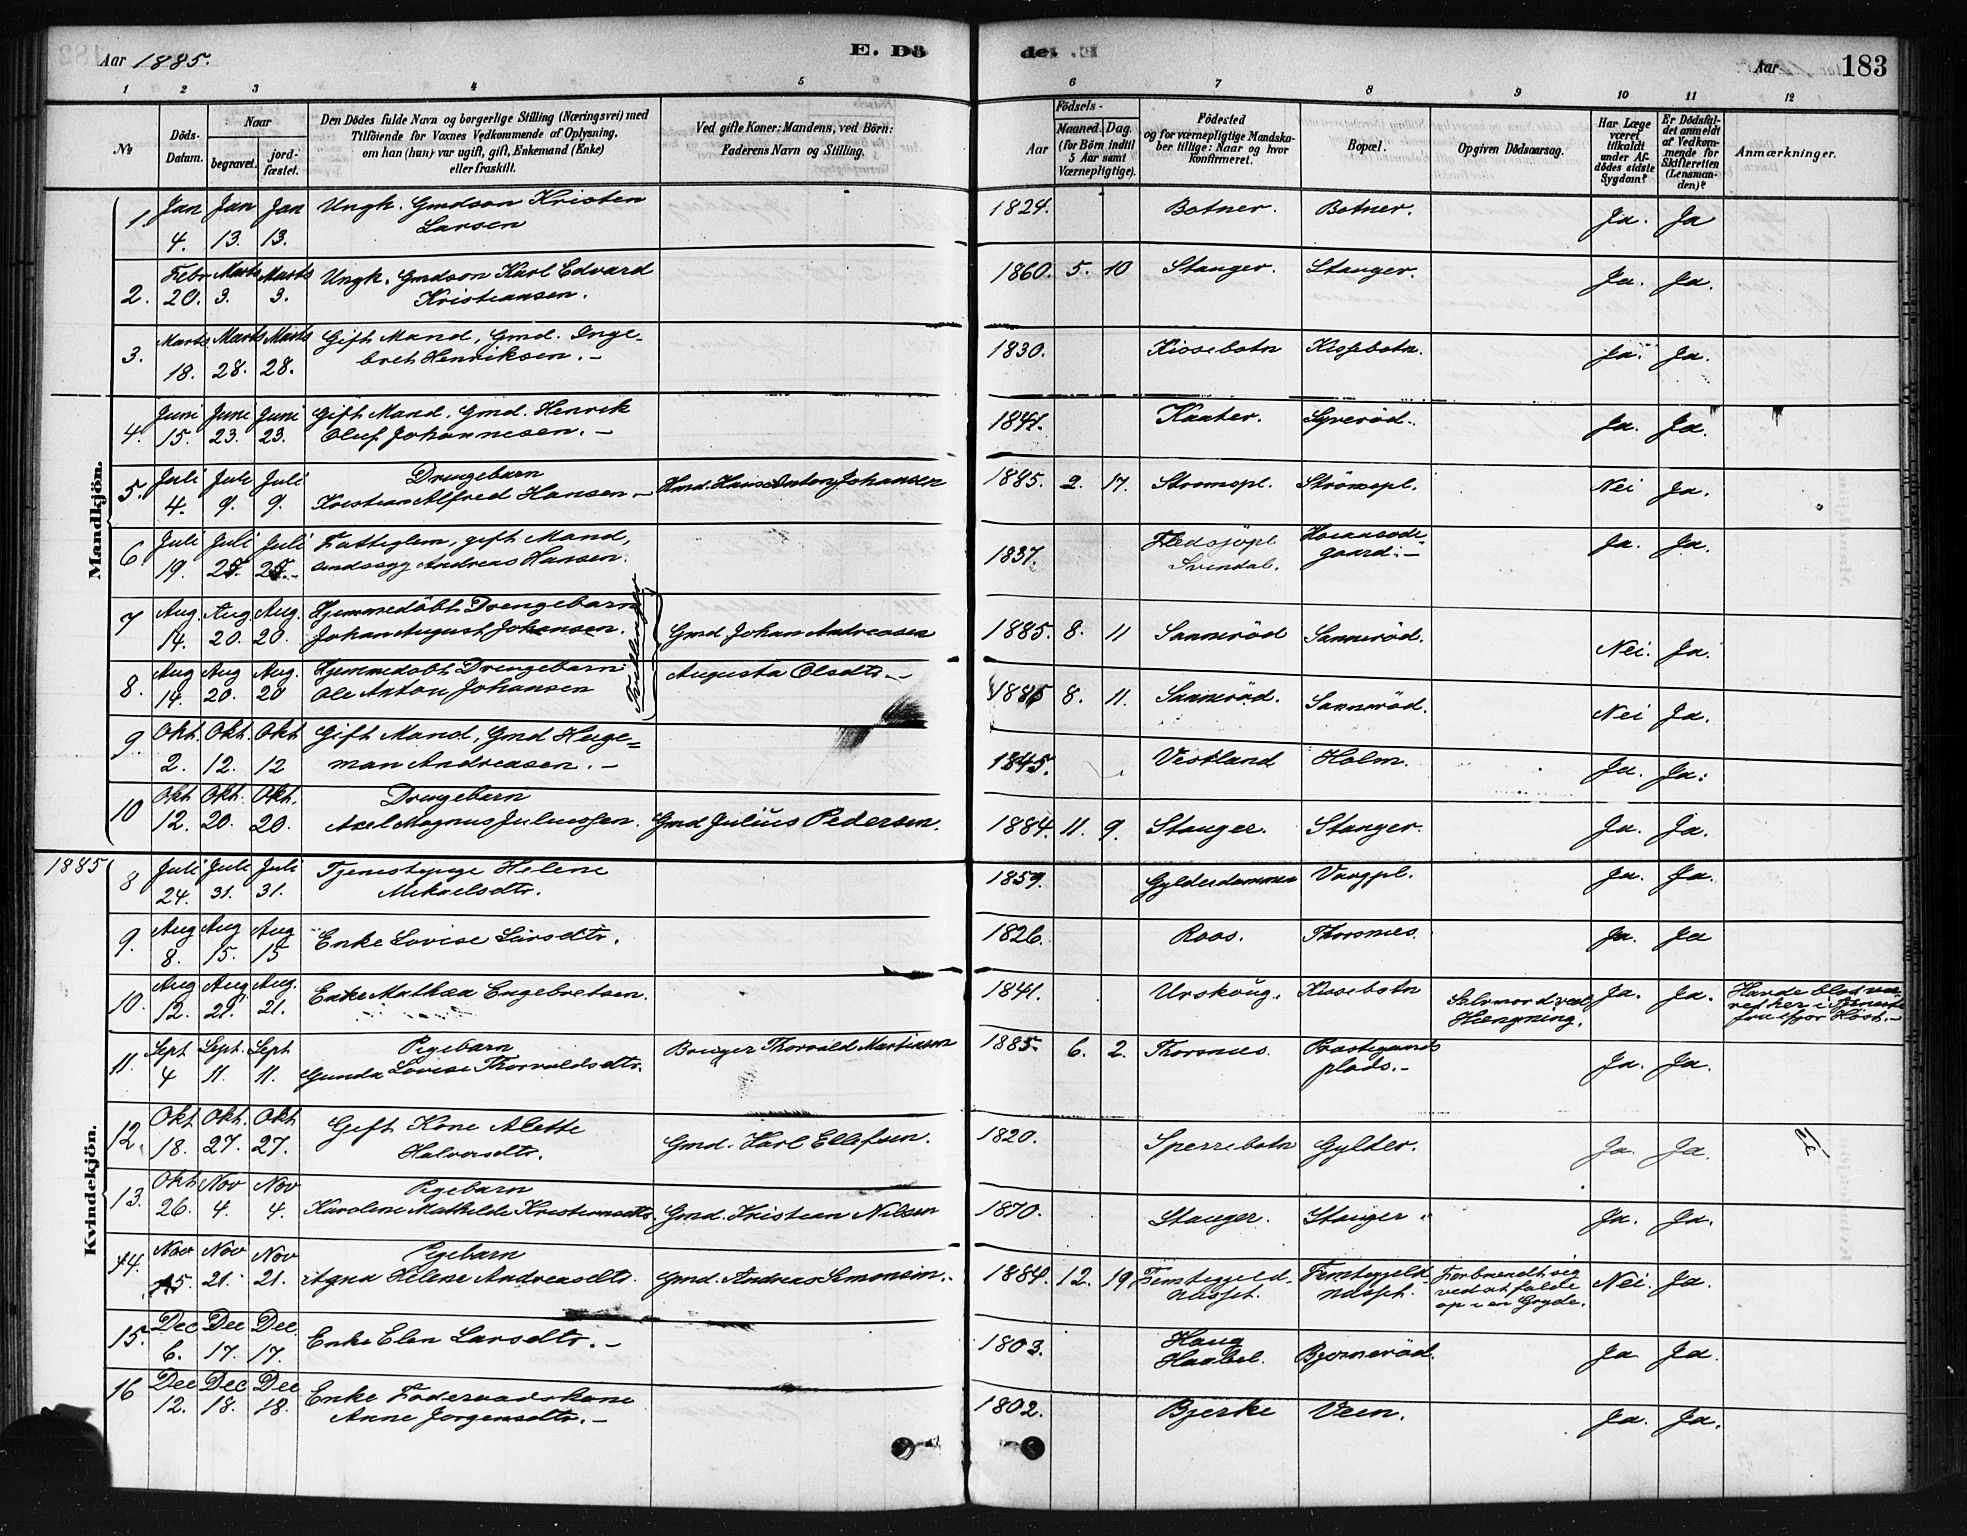 Aar 1885.
E. Dö
de. E.
Aar
183
1 2 3 4 5 6 7 8 9 10 11 12
No
Döds-Datum.
Naar
begravet.
jordfæstet.
Den Dödes fulde Navn og borgerlige Stilling (Næringsvei) med Tilföiende for Voxnes Vedkommende af Oplysning, om han (hun) var ugift, gift, Enkemand (Enke) eller fraskilt.
Ved gifte Koner: Mandens, ved Börn: Faderens Navn og Stilling.
Födsels-
Aar
Maaned. Dag.
(for Börn indtil 5 Aar samt Værnepligtige).
Födested og for værnepligtige Mandskaber tillige: Naar og hvor konfirmeret.
Bopæl.
Opgiven Dödsaarsag.
Har Læge været tilkaldt under Afdödes sidste Sygdom?
Er Dödsfaldet anmeldt af Vedkommende for Skifteretten (Lensmanden)?
Anmærkninger.
Mandkjön.
1. Jan 4. Jan 13. Jan 13. Ungk. Gmdsön Kristen Larsen 1824. Botner. Botner. Ja. Ja
2. Febr 20. Marts 3. Marts 3. Ungk. Gmdsön Karl Edvard Kristiansen. 1860. 5. 10 Stanger. Stanger. Ja. Ja.
3. Marts 18. Marts 28. Marts 28. Gift Mand, Gmd. Ingebret Henriksen. 1830. Kissebotn Kissebotn. Ja. Ja.
4. Juni 15. Juni 23. Juni 23. Gift Mand, Gmd. Henrik Oluf Johannesen. 1841. Kaater. Syverød. Ja. Ja.
5. Juli 4. Juli 9. Juli 9. Drengebarn Kristian Alfred Hansen Hmd. Hans Anton Johansen 1885. 2. 17. Strömspl. Strömspl. Nei Ja.
6 Juli 19. Juli 25. Juli 25. Fattiglem, gift Mand, sindssyg Andreas Hansen. 1837. Svindal. Ja. Ja.
7 Aug 14. Aug 20. Aug. 20. Hjemmedöbt Drengebarn Johan August Johansen. Gmd Johan Andreasen 1885. 8. 11 Sannerød Sannerød. Nei. Ja.
8. Aug 14. Aug 20. Aug. 20 Hjemmedöbt Drengebarn Ole Anton Johansen Tvillinger Augusta Olsdtr. 1885 8. 11. Sannerød. Sannerød. Nei Ja.
9. Okt. 2. Okt. 12. Okt 12 Gift Mand, Gmd Hageman Andreasen. 1845. Vestland Holm. Ja. Ja.
10 Okt 12. Okt. 20. Okt. 20. Drengebarn Axel Magnus Juliussen. Gmd Julius Pedersen. 1884. 11. 9. Stanger. Stanger. Ja. Ja.
1885
Kvindekjön.
8 Juli 24. Juli 31. Juli 31. Tjenestepige Helene Mikaelsdtr. 1859. Gylderdammen Vaagpl. Ja. Ja.
9. Aug 8. Aug 15. Aug 15 Enke Lovise Larsdtr. 1826. Roos. Thorsnæs. Ja. Ja
10. Aug 12. Aug 21. Aug. 21. Enke Mathea Engebretsen. 1841. Urskoug. Kissebotn Selvmord ved Hængning. Ja. Ja. Havde blot været her i Tjeneste fra ifjor Höst.
11. Sept 4 Sept. 11. Sept 11. Pigebarn Gunda Lovise Thorvaldsdtr. Bruger Thorvald Martinsen 1885. 6. 2. Thorsnæs. Præstegaards plads. Ja. Ja.
12. Okt 18. Okt. 27. Okt 27. Gift Kone Alette Halvorsdtr. Gmd. Karl Ellefsen. 1820. Sperrebotn Gylder. Ja. Ja.
13. Okt 26. Nov 4. Nov 4. Pigebarn Karoline Mathilde Kristiansdtr. Gmd. Kristian Nilsen 1870. Stanger. Stanger. Ja. Ja.
14. Nov 15. Nov 21. Nov 21. Pigebarn Agna Helene Andreasdtr. Gmd. Andreas Simonsen. 1884. 12. 19 Femtegjeld Femtegjeld Forbrændt sig ved at falde op i en Gryde. Nei. Ja.
15. Dec 6. Dec 17. Dec. 17. Enke Elen Larsdtr. 1803. Haug Haabøl. Bjørnerød. Ja Ja.
16 Dec 12. Dec 18. Dec 18. Enke Föderaadskone Anne Jørgensdtr. 1802. Bjerke Veen. Ja. Ja.